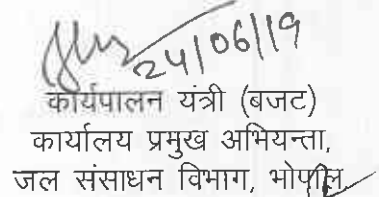 24/06/19
कार्यपालन यंत्री (बजट)
कार्यालय प्रमुख अभियन्ता,
जल संसाधन विभाग, भोपाल